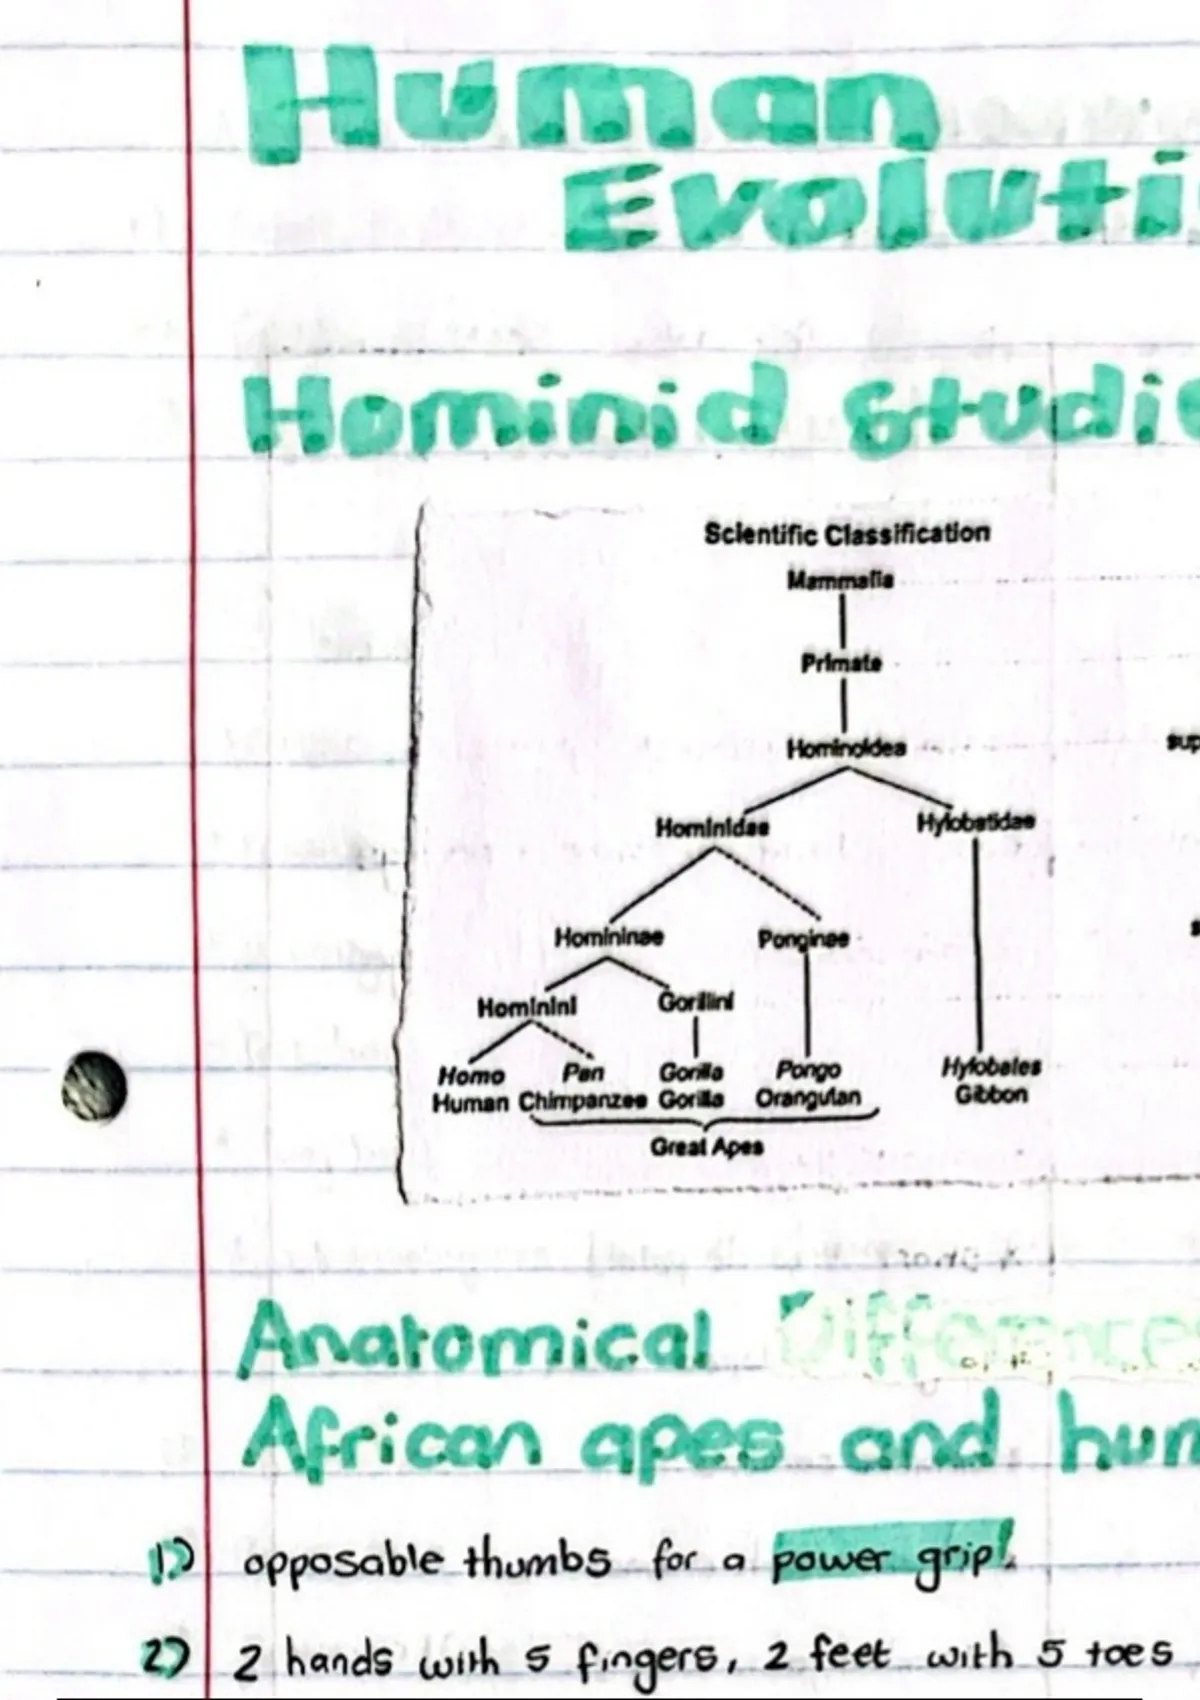 Human
Evoluti
Hominid studi
Scientific Classification
Mammalia
Primate
Hominoidea
sup
Hominidae Hylobatidae
Homininae Ponginae
Hominini Gorillini
Homo Pan Gorilla Pongo Hylobates
Human Chimpanzee Gorilla Orangutan Gibbon
Great Apes
Anatomical Difference
African apes and hum
1) opposable thumbs for a power grip.
2) 2 hands with 5 fingers, 2 feet with 5 toes